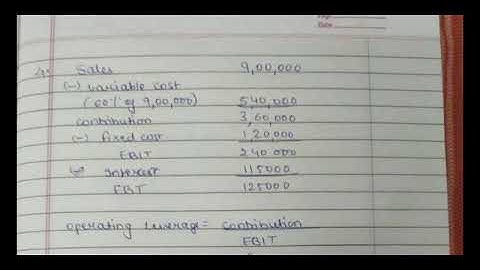 Sales 9,00,000
(-) variable cost
(60% of 9,00,000) 540,000
contribution 3,60,000
(-) fixed cost 1,20,000
EBIT 240 000
(-) Interest 115000
EBT 125000
operating leverage = contribution
EBIT